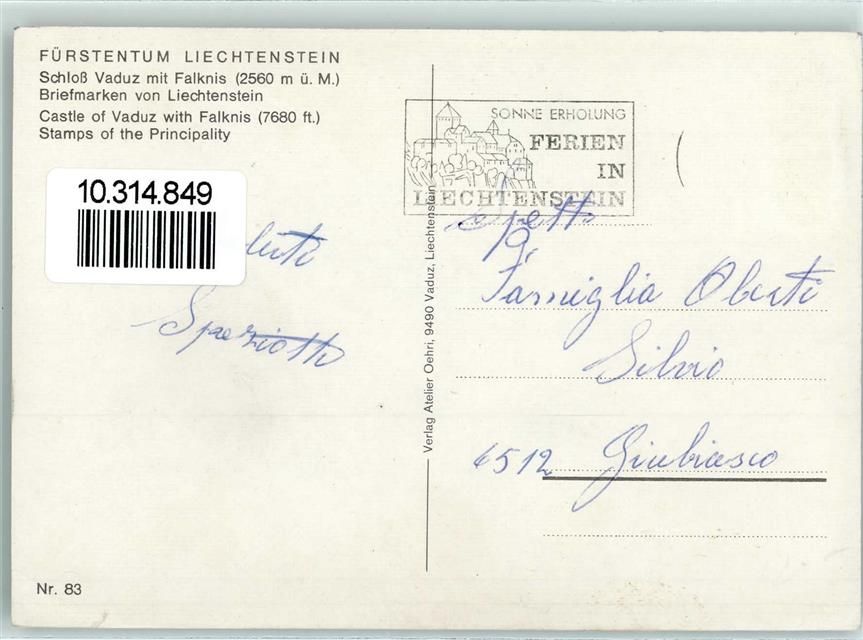 FÜRSTENTUM LIECHTENSTEIN
Schloß Vaduz mit Falknis (2560 m ü. M.)
Briefmarken von Liechtenstein
Castle of Vaduz with Falknis (7680 ft.)
Stamps of the Principality
10.314.849
Verlag Atelier Oehri, 9490 Vaduz, Liechtenstein
SONNE ERHOLUNG
FERIEN
IN
LIECHTENSTEIN
Spett.
Famiglia Oberti
Silvio
6512 Giubiasco
Nr. 83